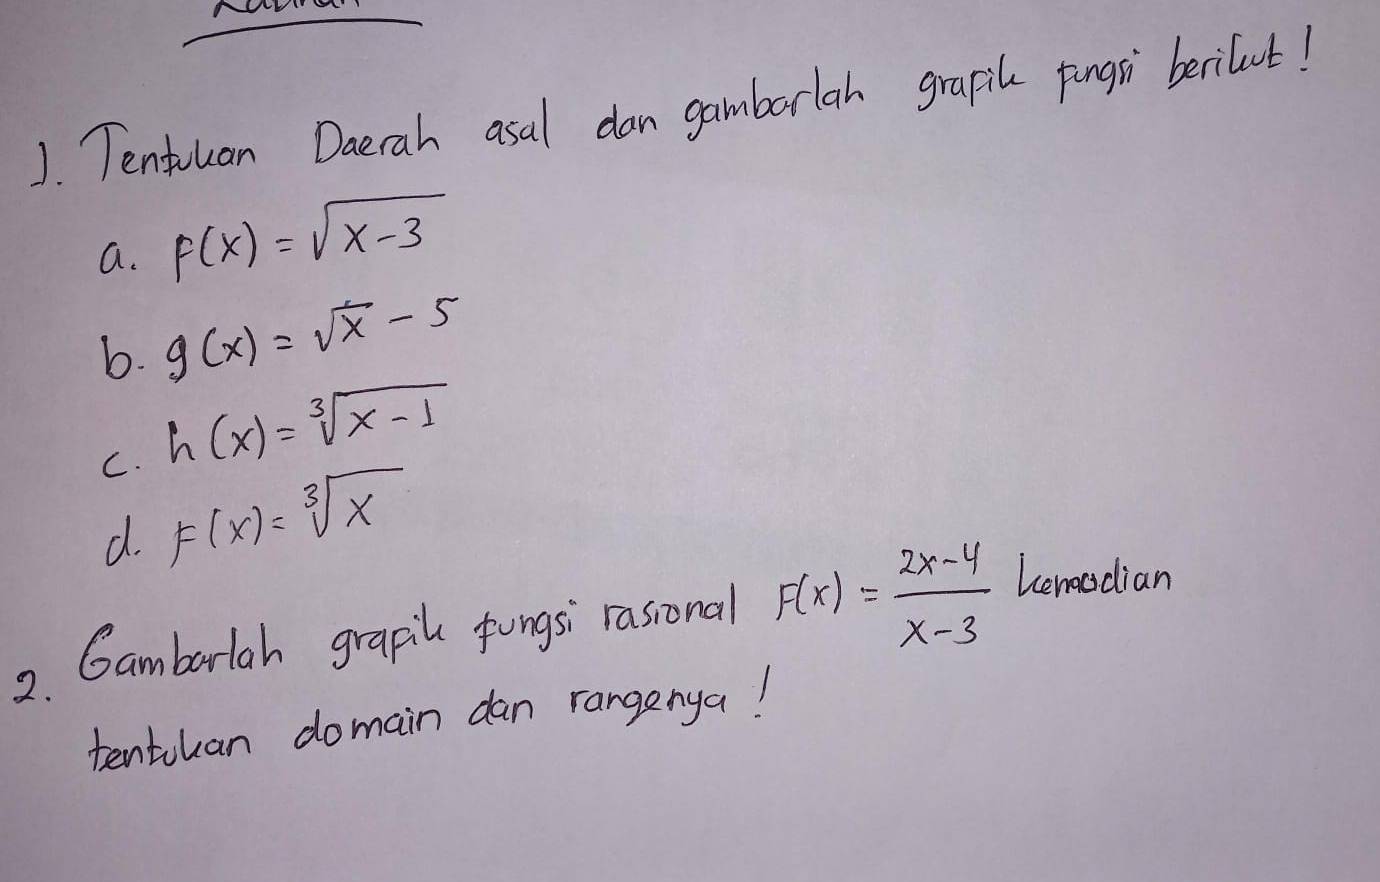 1. Tentukan Daerah asal dan gambarlah grafik fungsi berikut!
a. F(x) = √(x-3)
b. g(x) = √x - 5
c. h(x) = ³√(x-1)
d. F(x) = ³√x
2. Gambarlah grafik fungsi rasional F(x) = (2x-4)/(x-3) kemudian
tentukan domain dan rangenya!